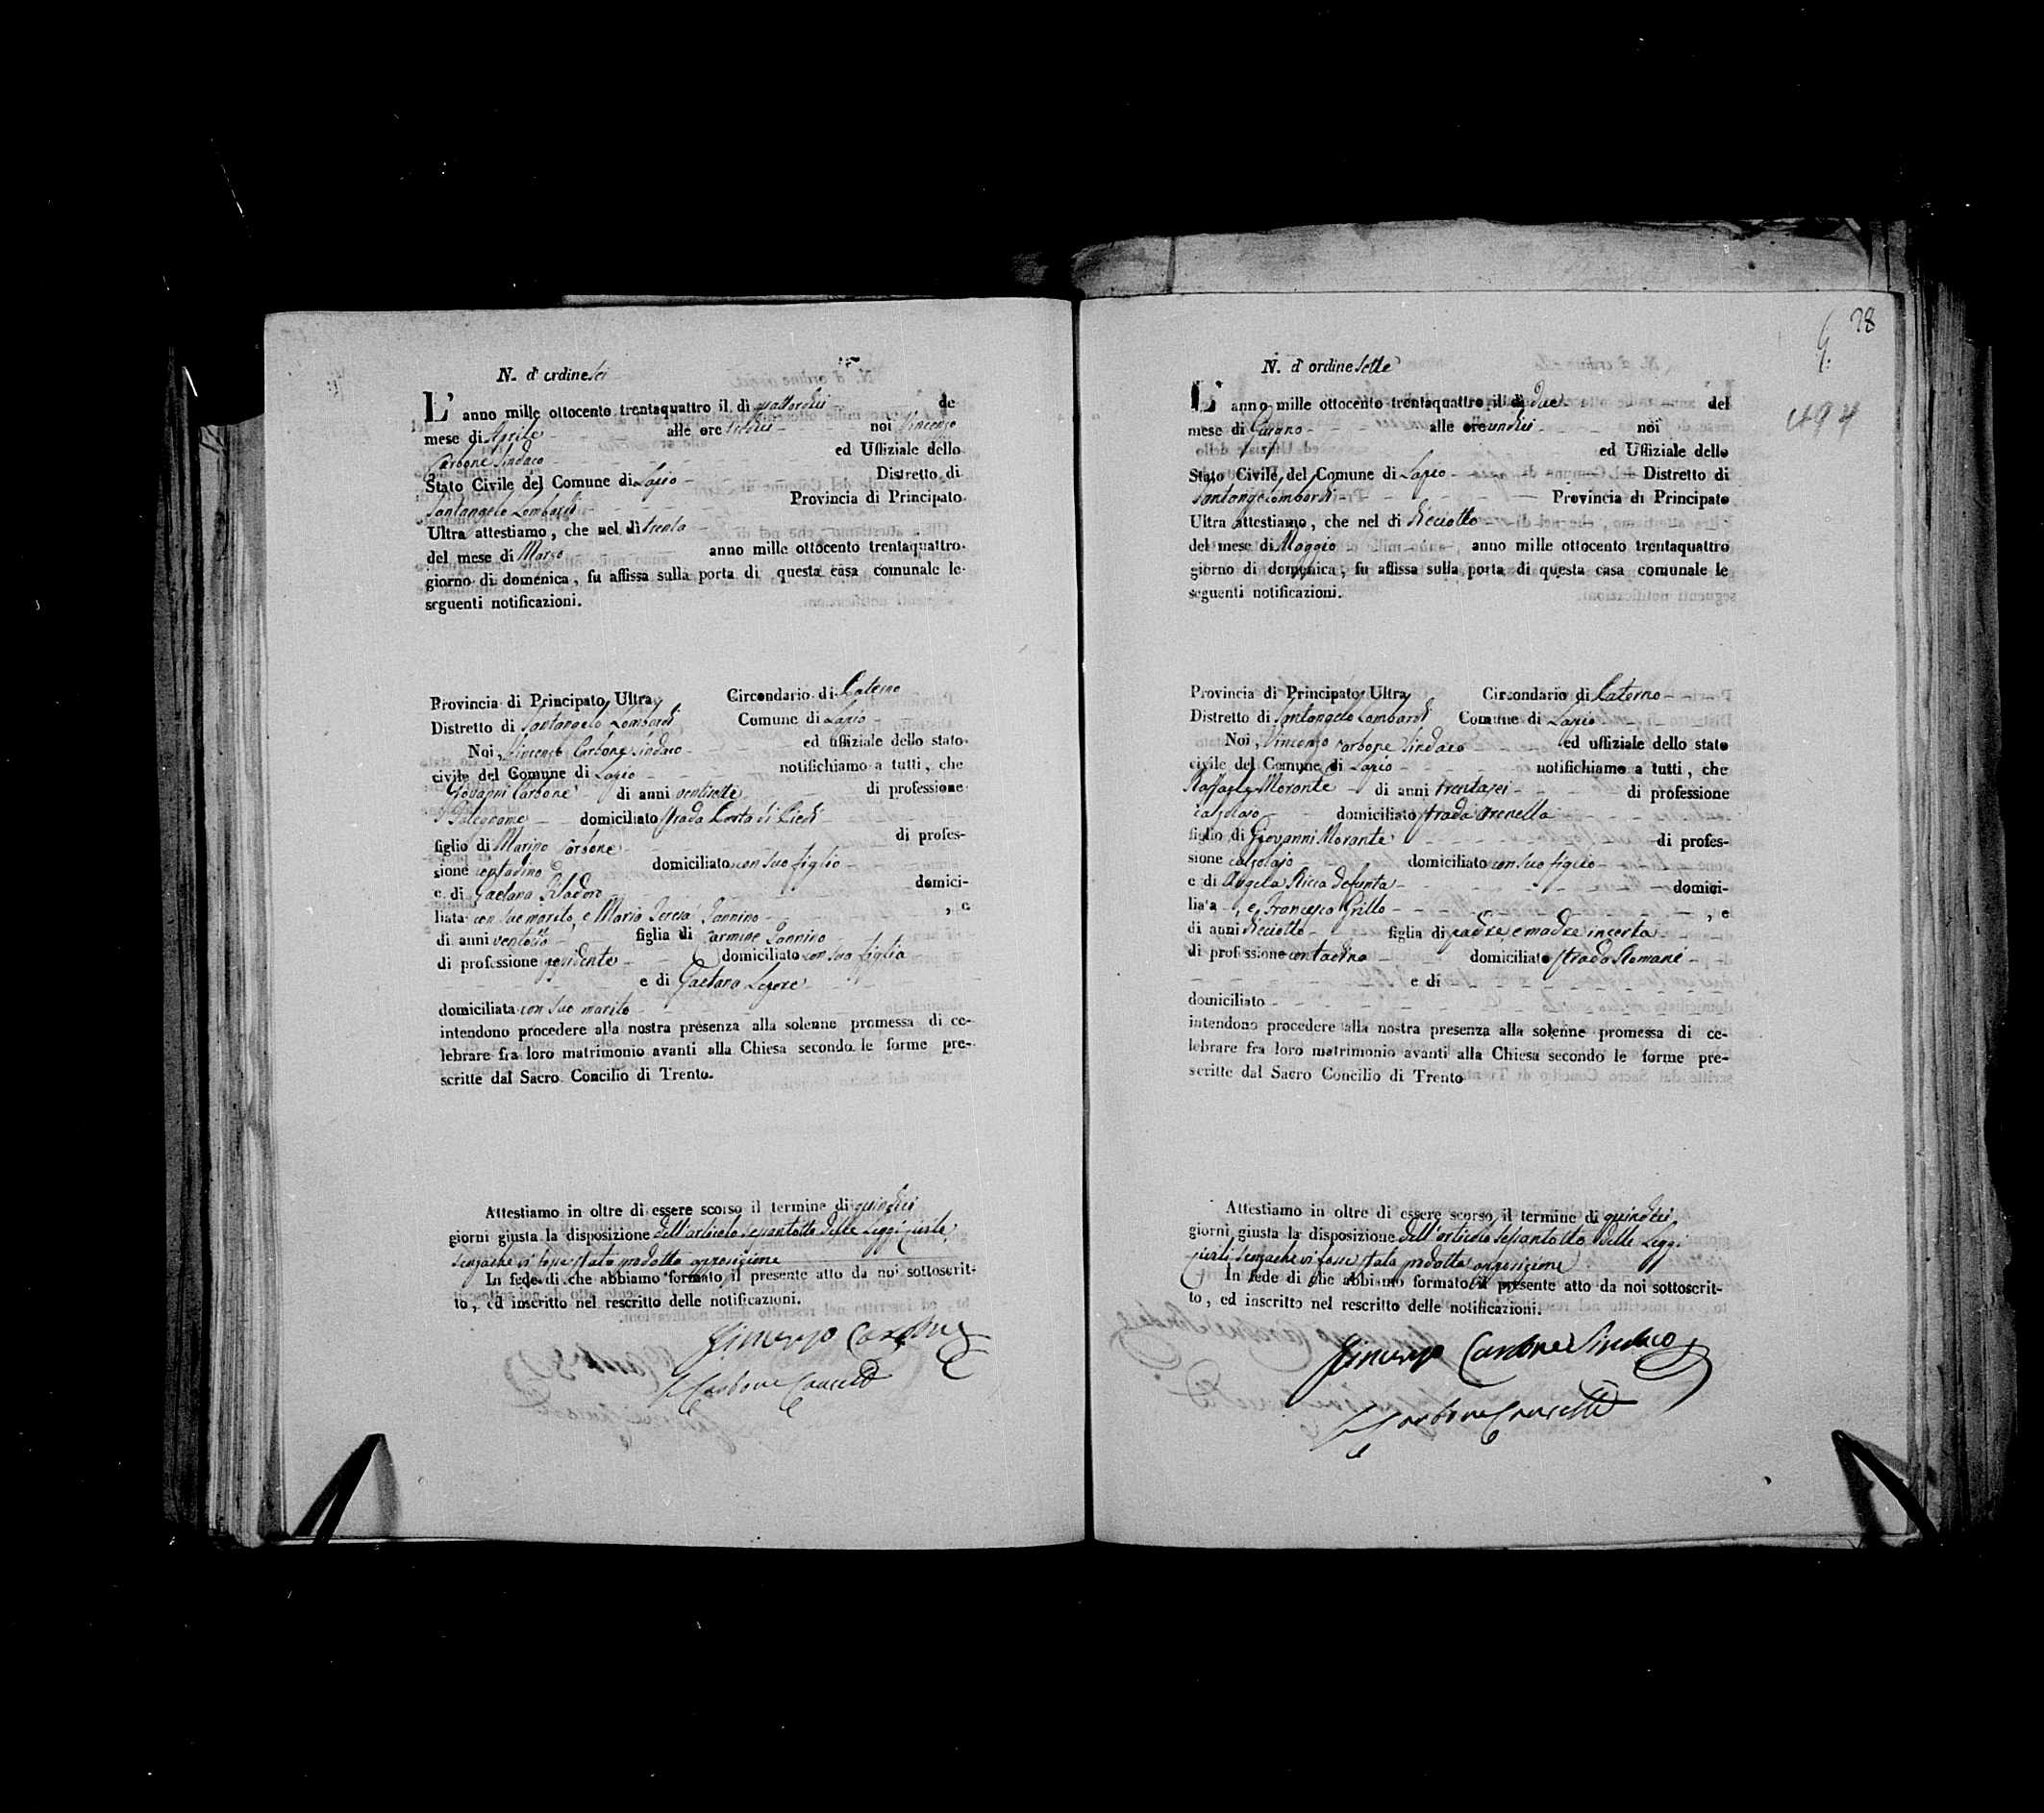 N. d'ordine sei
L'anno mille ottocento trentaquattro il dì quattordici de
mese di Aprile alle ore noi Vincenzo
Carbone Sindaco ed Uffiziale dello
Stato Civile del Comune di Lapio Distretto di
Santangelo Lombardi Provincia di Principato
Ultra attestiamo, che nel dì trenta
del mese di Marzo anno mille ottocento trentaquattro
giorno di domenica, fu affissa sulla porta di questa casa comunale le
seguenti notificazioni.
Provincia di Principato Ultra Circondario di Paterno
Distretto di Santangelo Lombardi Comune di Lapio
Noi, Vincenzo Carbone Sindaco ed uffiziale dello stato
civile del Comune di Lapio notifichiamo a tutti, che
Giovanni Carbone di anni ventisette di professione
domiciliato strada Costa di Piedi
figlio di Marino Carbone di profes-
sione contadino domiciliato con suo figlio
e di Gaetana domici-
liata con suo marito, e Maria Teresa Iannino , e
di anni ventotto figlia di Carmine Iannino
di professione possidente domiciliato con sua figlia
e di Gaetana Lepore
domiciliata con suo marito
intendono procedere alla nostra presenza alla solenne promessa di ce-
lebrare fra loro matrimonio avanti alla Chiesa secondo le forme pre-
scritte dal Sacro Concilio di Trento.
Attestiamo in oltre di essere scorso il termine di quindici
giorni giusta la disposizione dell'articolo sessantotto delle Leggi civili,
senzache vi fosse stata prodotta opposizione
In fede di che abbiamo formato il presente atto da noi sottoscrit-
to, ed inscritto nel rescritto delle notificazioni.
Vincenzo Carbone
Carbone
28
494
N. d'ordine sette
L'anno mille ottocento trentaquattro il dì due del
mese di Giugno alle ore undici noi
ed Uffiziale dello
Stato Civile del Comune di Lapio Distretto di
Santangelo Lombardi Provincia di Principato
Ultra attestiamo, che nel dì diciotto
del mese di Maggio anno mille ottocento trentaquattro
giorno di domenica, fu affissa sulla porta di questa casa comunale le
seguenti notificazioni.
Provincia di Principato Ultra Circondario di Paterno
Distretto di Santangelo Lombardi Comune di Lapio
Noi, Vincenzo Carbone Sindaco ed uffiziale dello stato
civile del Comune di Lapio notifichiamo a tutti, che
Raffaele Morante di anni trentasei di professione
calzolajo domiciliato strada Arenella
figlio di Giovanni Morante di profes-
sione calzolajo domiciliato con suo figlio
e di Angela Ricca defunta domici-
liata , e Francesca Grillo , e
di anni diciotto figlia di padre, e madre incerta
di professione contadina domiciliato strada Romani
e di
domiciliato
intendono procedere alla nostra presenza alla solenne promessa di ce-
lebrare fra loro matrimonio avanti alla Chiesa secondo le forme pre-
scritte dal Sacro Concilio di Trento
Attestiamo in oltre di essere scorso il termine di quindici
giorni giusta la disposizione dell'articolo sessantotto delle Leggi
civili senzache vi fosse stata prodotta opposizione
In fede di che abbiamo formato il presente atto da noi sottoscrit-
to, ed inscritto nel rescritto delle notificazioni.
Vincenzo Carbone Sindaco
Carbone